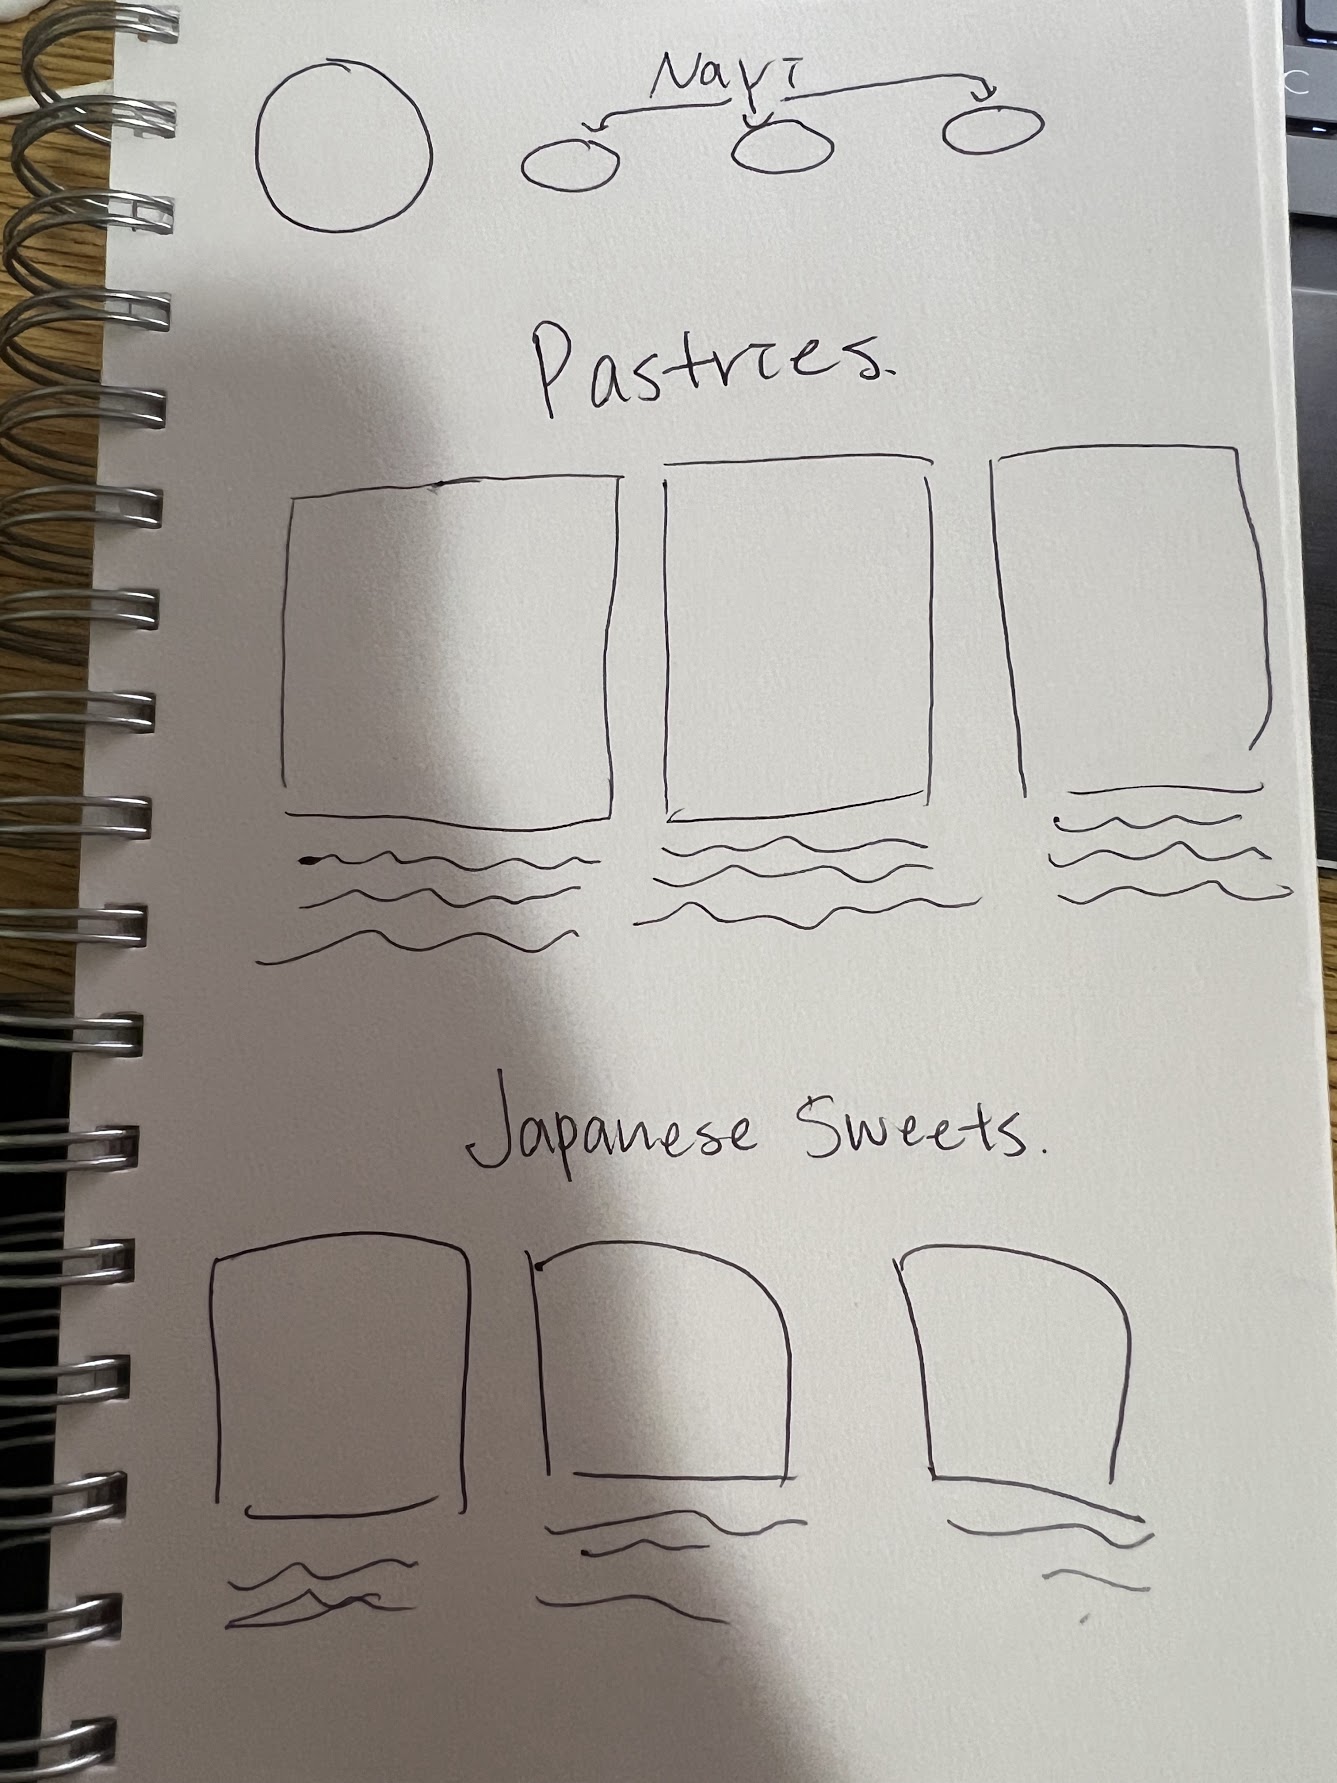 Navi
Pastries.
Japanese Sweets.
C